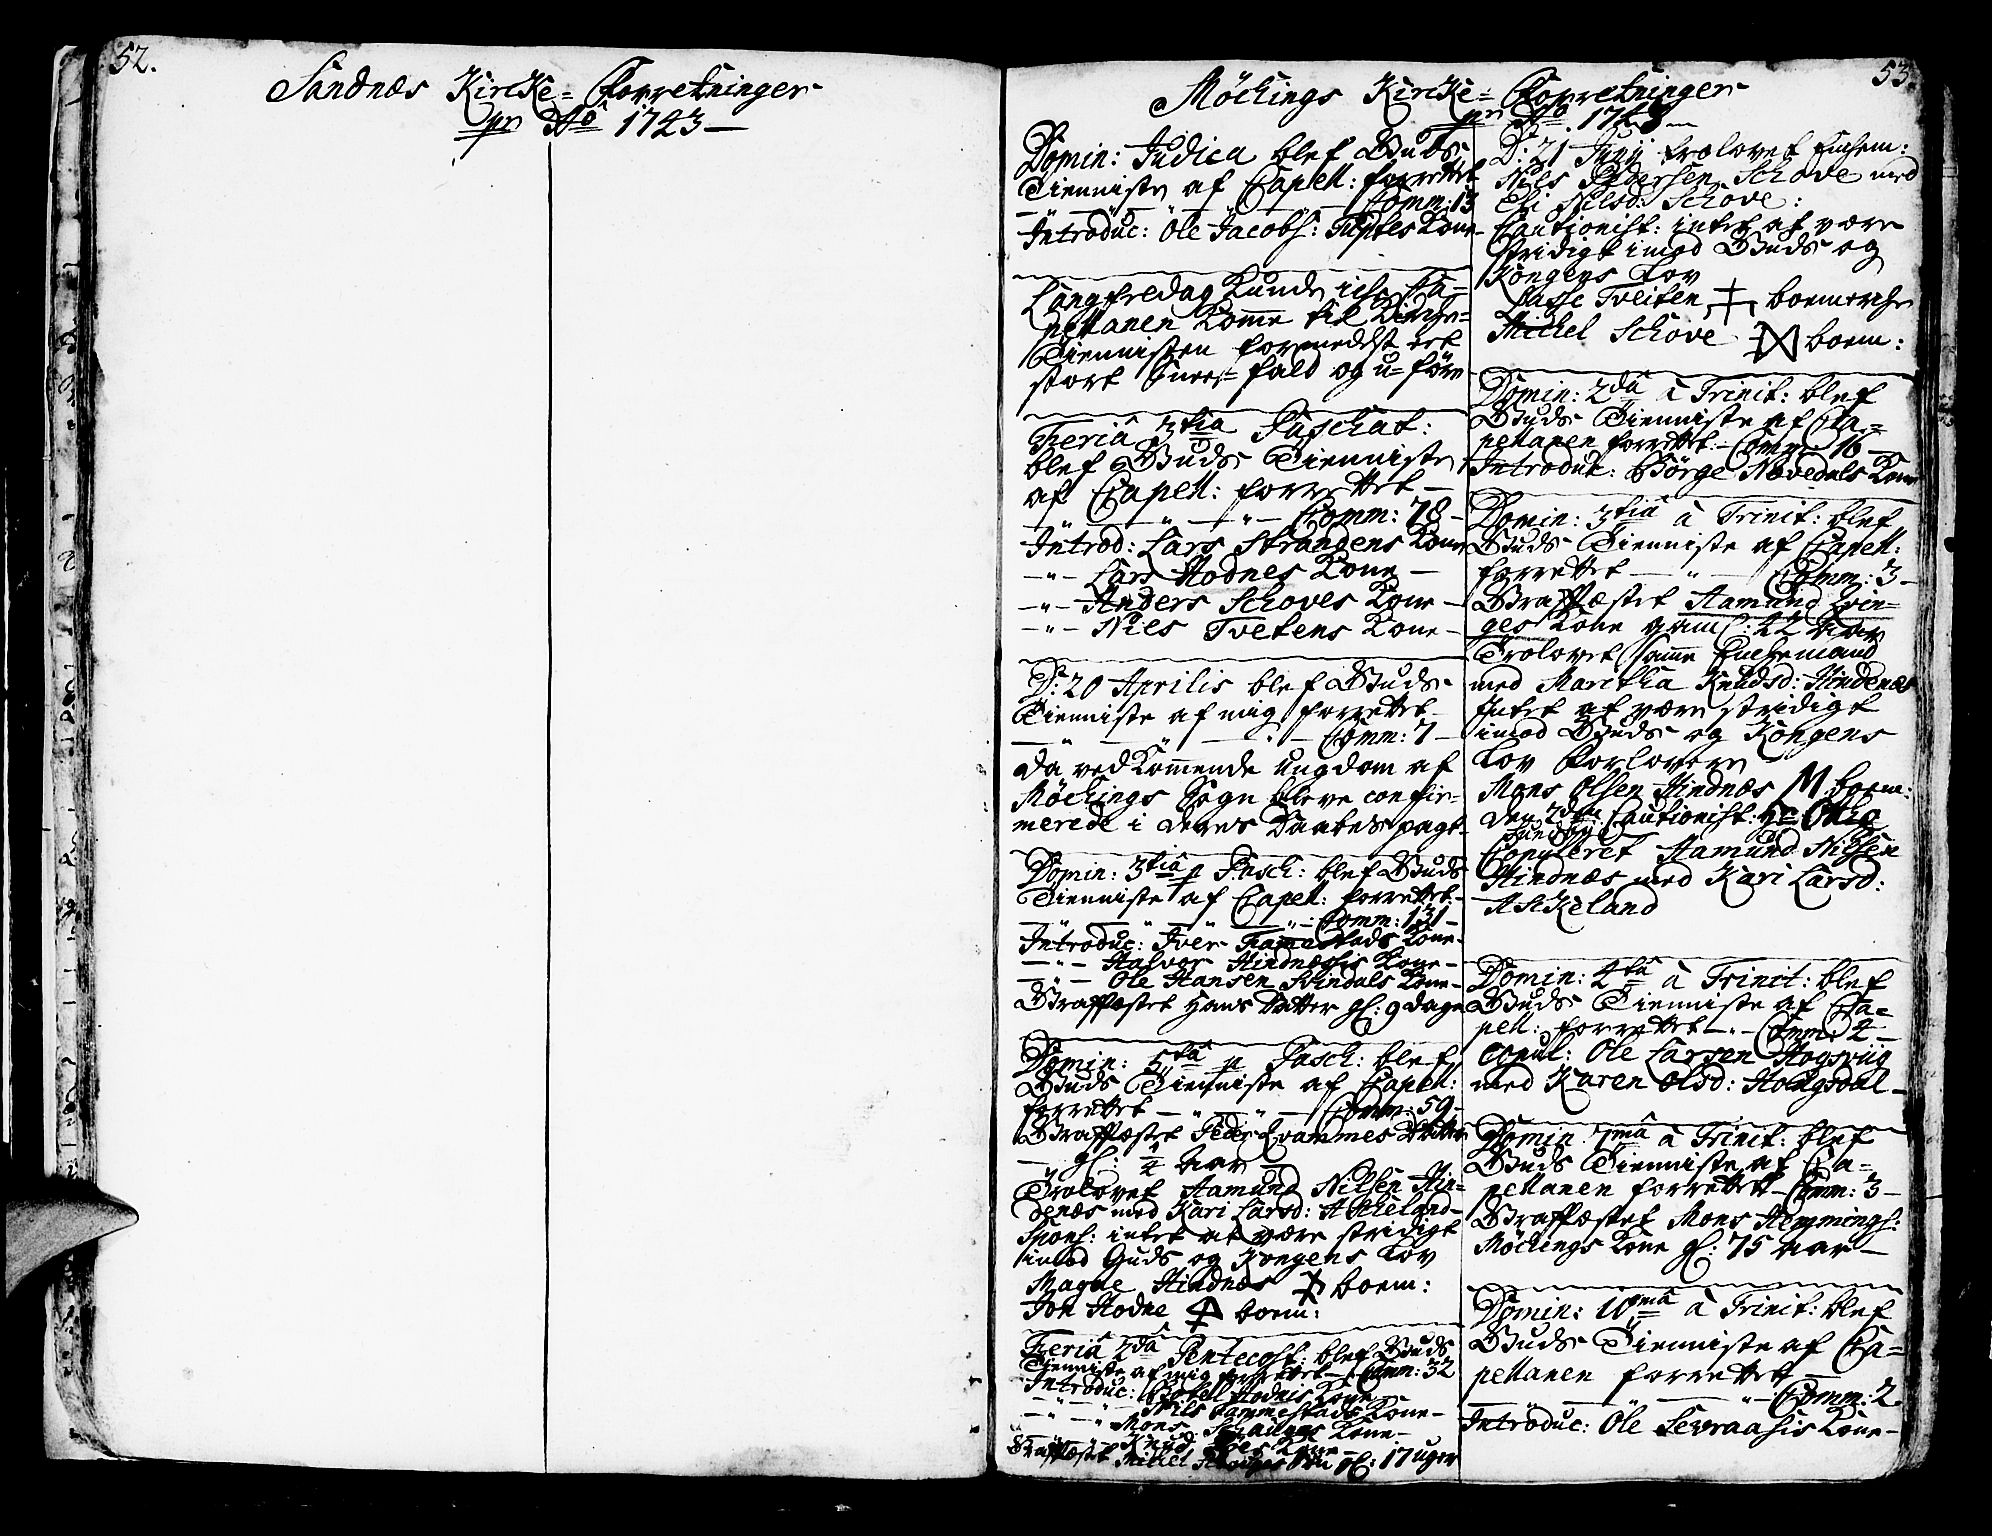 52.
Sandnæs Kircke-Forretninger
pr Aō 1743
Möckings Kircke-Forretninger
pr Aō 1743
53.
Domin: Judica blef Guds
Tienniste af Capell: forrettet
Comm: 13
Introduc: Ole Jacobs: Tuftes Kone
Langfredag Kunde iche Ca=
pellanen komme til Kirche=
Tiennisten formedelst et
stort Snee=fald og u=före
Feriâ 3tia Paschat:
blef Guds Tienniste
af Capell: forrettet
Comm: 78
Introd: Lars Strandens Kone
Lars Hodnes Kone
Anders Schoves Kone
Niels Tvetens Kone
D: 20 Aprilis blef Guds
Tienniste af mig forrettet
Comm: 7
da vedkommende ungdom af
Möckings Sogn bleve confir=
merede i deres Daabes pagt
Domin: 3tiâ p Pasch: blef Guds
Tienniste af Capell: forrettet
Comm: 131
Introduc: Iver Kone
Halvor Hindnæsis Kone
Ole Hansen Svindals Kone
Graffæstet Hans Datter gl: 9 dage
Domin: 5tâ p Pasch: blef
Guds Tienniste af Capell:
forrettet Comm: 59
Graffæstet Peder Qvammes Datter
gl: 1/4 aar
Trolovet Aamund Nilsen Hin=
denæs med Kari Larsd: Askeland
Spons: intet at være stridigt
imod Guds og Kongens Lov
Magne Hindnæs boem:
Jon Hodne boem:
Feriâ 2dâ Pentecost: blef Guds
Tienniste af mig forrettet Comm: 32
Introduc: Hodnis Kone
Nils Kone
Mons Kone
Knud Kone
Graffæstet Michel gl: 17 uger
D: 21 Junij trolovet Enchem:
Niels Pedersen Schove med
Eli Nilsd: Schove:
Cautionist: intet at være
stridigt imod Guds og
Kongens Lov
Lasse Tveiten boemerche
Michel Schove boem:
Domin: 2dâ à Trinit: blef
Guds Tienniste af Ca=
pellanen forrettet Comm: 16
Introduc: Börge Nævedals Kone
Domin: 3tiâ à Trinit: blef
Guds Tienniste af Capell:
forrettet Comm: 3
Graffæstet Aamund
Kone gaml: 42 aar
Trolovet samme Enchemand
med Maritha Knudsd: Hindenæs
Intet at være stridigt
imod Guds og Kongens
Lov Forlovere
Mons Olsen Hindnæs M boem:
den 2den Cautionist: Hr Otho
Copuleret Aamund Nilsen
Hindnæs med Kari Larsd:
Askeland
Domin: 4tâ à Trinit: blef
Guds Tienniste af Ca=
pell: forrettet Comm: 4
Copul: Ole Larsen Hogsvig
med Karen Olsd: Hougsdal
Domin 7mâ à Trinit: blef
Guds Tienniste af Ca=
pellanen forrettet Comm: 3
Graffæstet Mons Hemmings:
Möckings Kone gl: 75 aar
Domin: 10mâ à Trinit: blef
Guds Tienniste af Ca=
pellanen forrettet
Comm: 2.
Introduc: Ole Sevraasis Kone